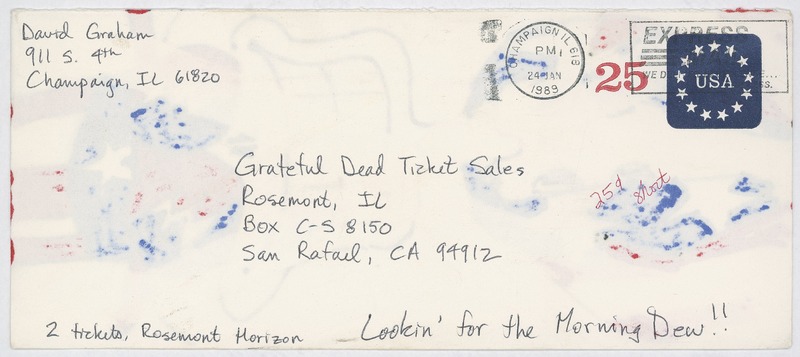 David Graham
911 S. 4th
Champaign, IL 61820
CHAMPAIGN IL 618
PM
24 JAN
1989
EXPRESS
25
USA
Grateful Dead Ticket Sales
Rosemont, IL
Box C-S 8150
San Rafael, CA 94912
25¢ short
2 tickets, Rosemont Horizon
Lookin' for the Morning Dew!!